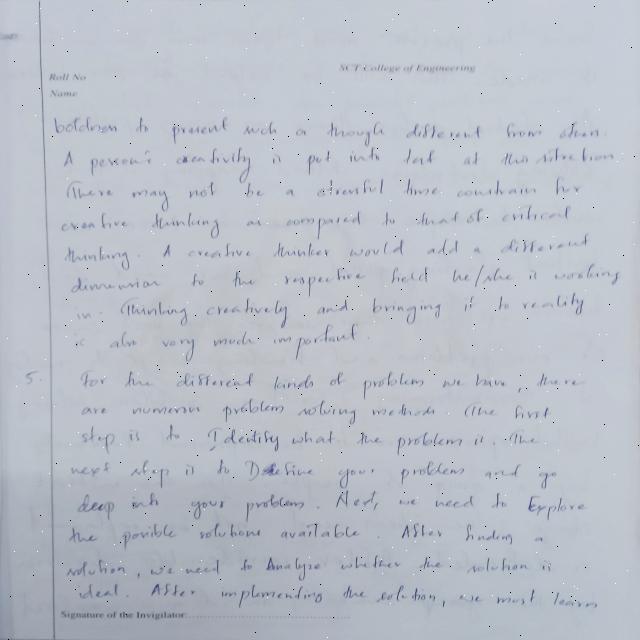 SCT College of Engineering
Roll No
Name
to present such a though different from others.
A person's creativity is put into test at this sitration
There may not be a stressful time constrain for
creative thinking as compared to that of critical
thinking. A creative thinker would add a different
dimension to the respective field he/she is working
in. Thinking creatively and bringing it to reality
is also very much important.
5. For the different kinds of problem we have, there
are numerous problem solving methods. The first
step is to Identify what the problem is. The
next step is to Define your problem and go
deep into your problem. Next, we need to Explore
the possible solutions available. After finding a
solution, we need to Analyze whether the solution is
ideal. After implementing the solution, we must learn
Signature of the Invigilator: